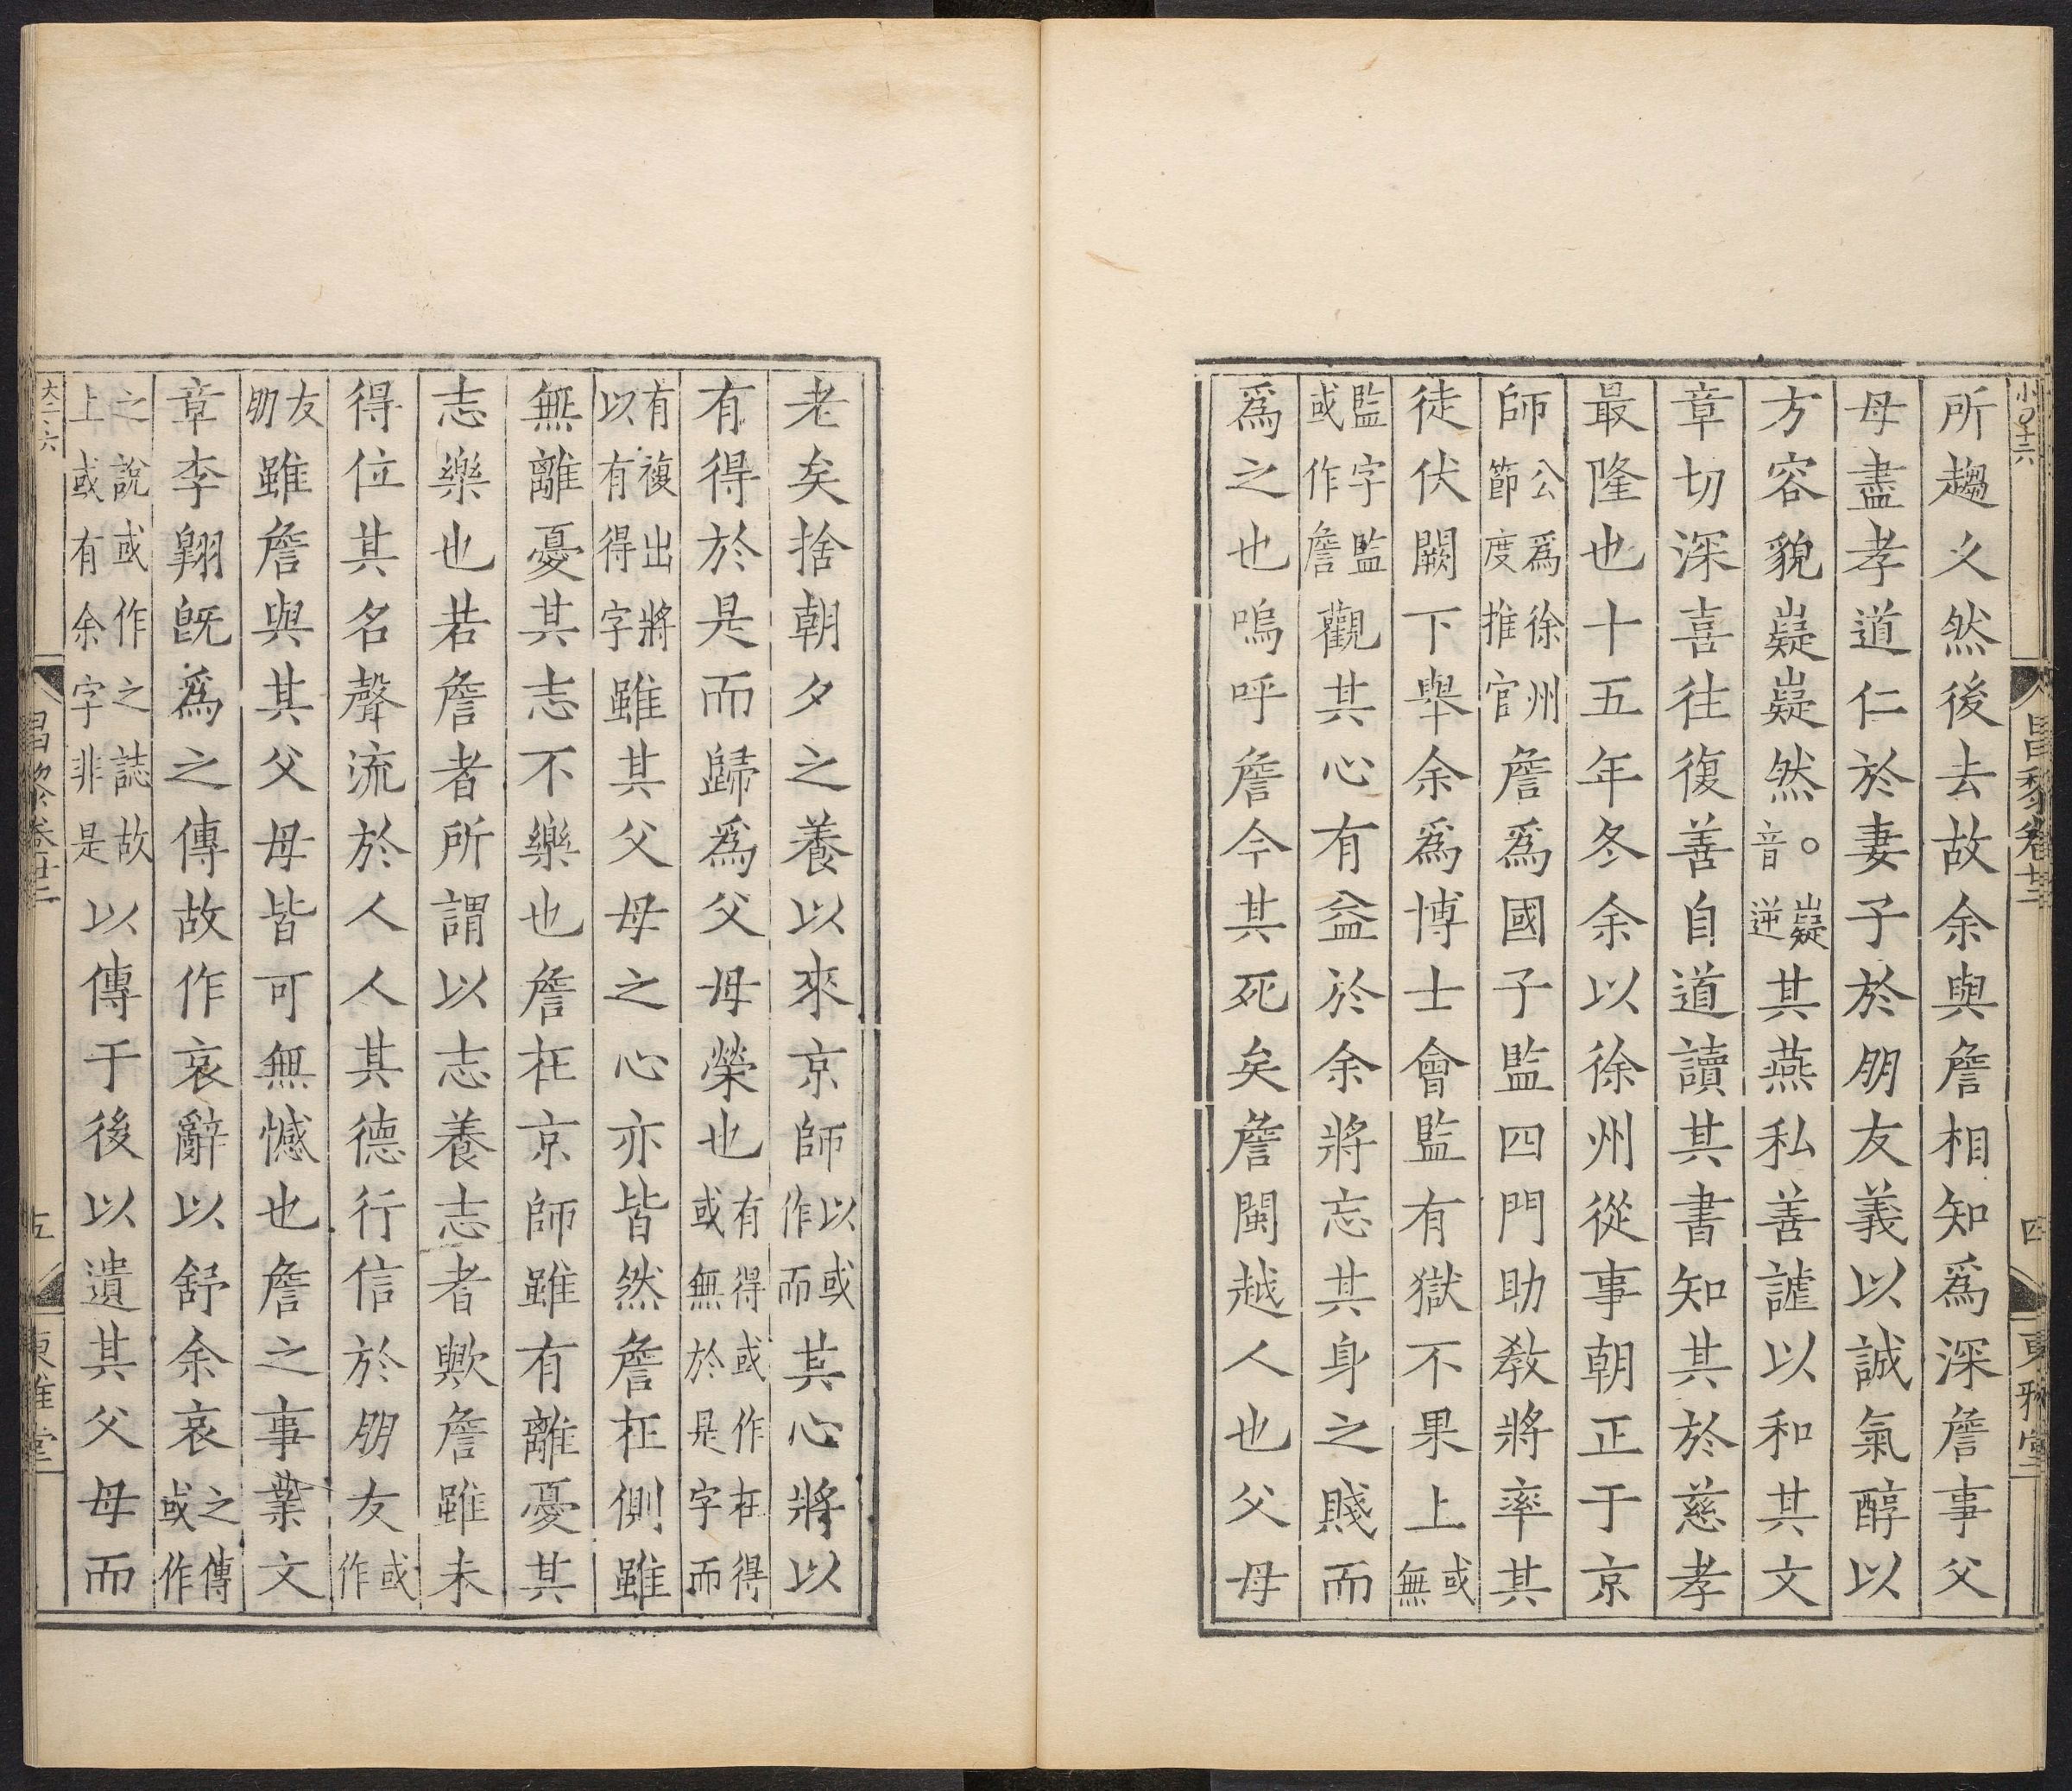 小〇十六
昌黎卷廿二
四
東雅堂
所趨乂然後去故余與詹相知爲深詹事父
母盡孝道仁於妻子於朋友義以誠氣醇以
方容貌嶷嶷然○嶷音逆其燕私善謔以和其文
章切深喜往復善自道讀其書知其於慈孝
最隆也十五年冬余以徐州從事朝正于京
師公爲徐州節度推官詹爲國子監四門助敎將率其
徒伏闕下舉余爲博士會監有獄不果上或無
監字監或作詹觀其心有益於余將忘其身之賤而
爲之也嗚呼詹今其死矣詹閩越人也父母
老矣捨朝夕之養以來京師以或作而其心將以
有得於是而歸爲父母榮也有得或作在得或無於是字而
有複出將以有得字雖其父母之心亦皆然詹在側雖
無離憂其志不樂也詹在京師雖有離憂其
志樂也若詹者所謂以志養志者歟詹雖未
得位其名聲流於人人其德行信於朋友或作
友朋雖詹與其父母皆可無憾也詹之事業文
章李翺旣爲之傳故作哀辭以舒余哀之傳或作
之說或作之誌故上或有余字非是以傳于後以遺其父母而
大二六
昌黎卷廿二
五
東雅堂